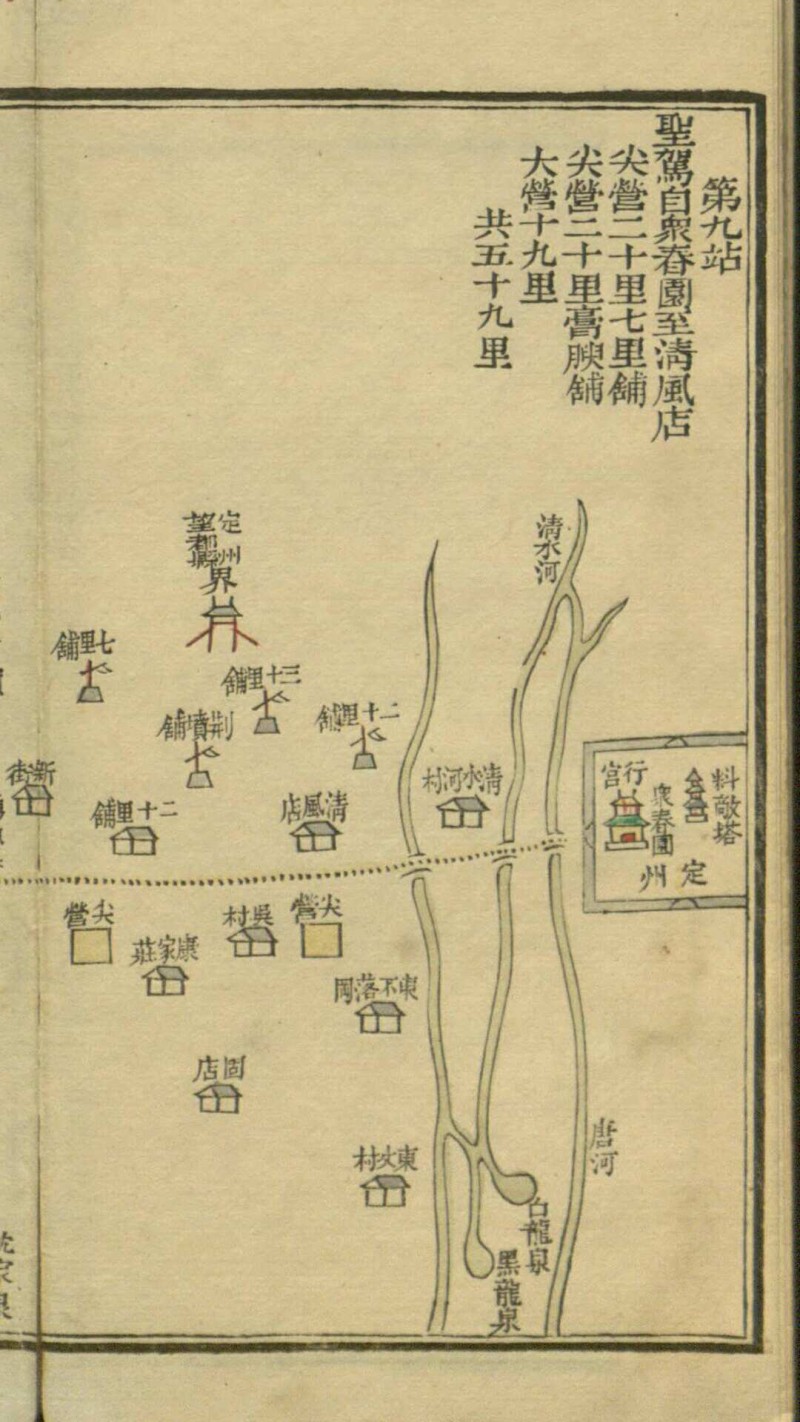 第九站
聖駕自衆春園至清風店
尖營二十里七里舖
尖營二十里膏腴舖
大營十九里
共五十九里
清水河
定州
望都縣
界
七里舖
三十里舖
荆墳舖
二十里舖
清水河村
行宮
衆春園
料敵塔
定州
新街
二十里舖
清風店
尖營
吳村
尖營
康家莊
東不落岡
固店
唐河
東坎村
白龍泉
黑龍泉